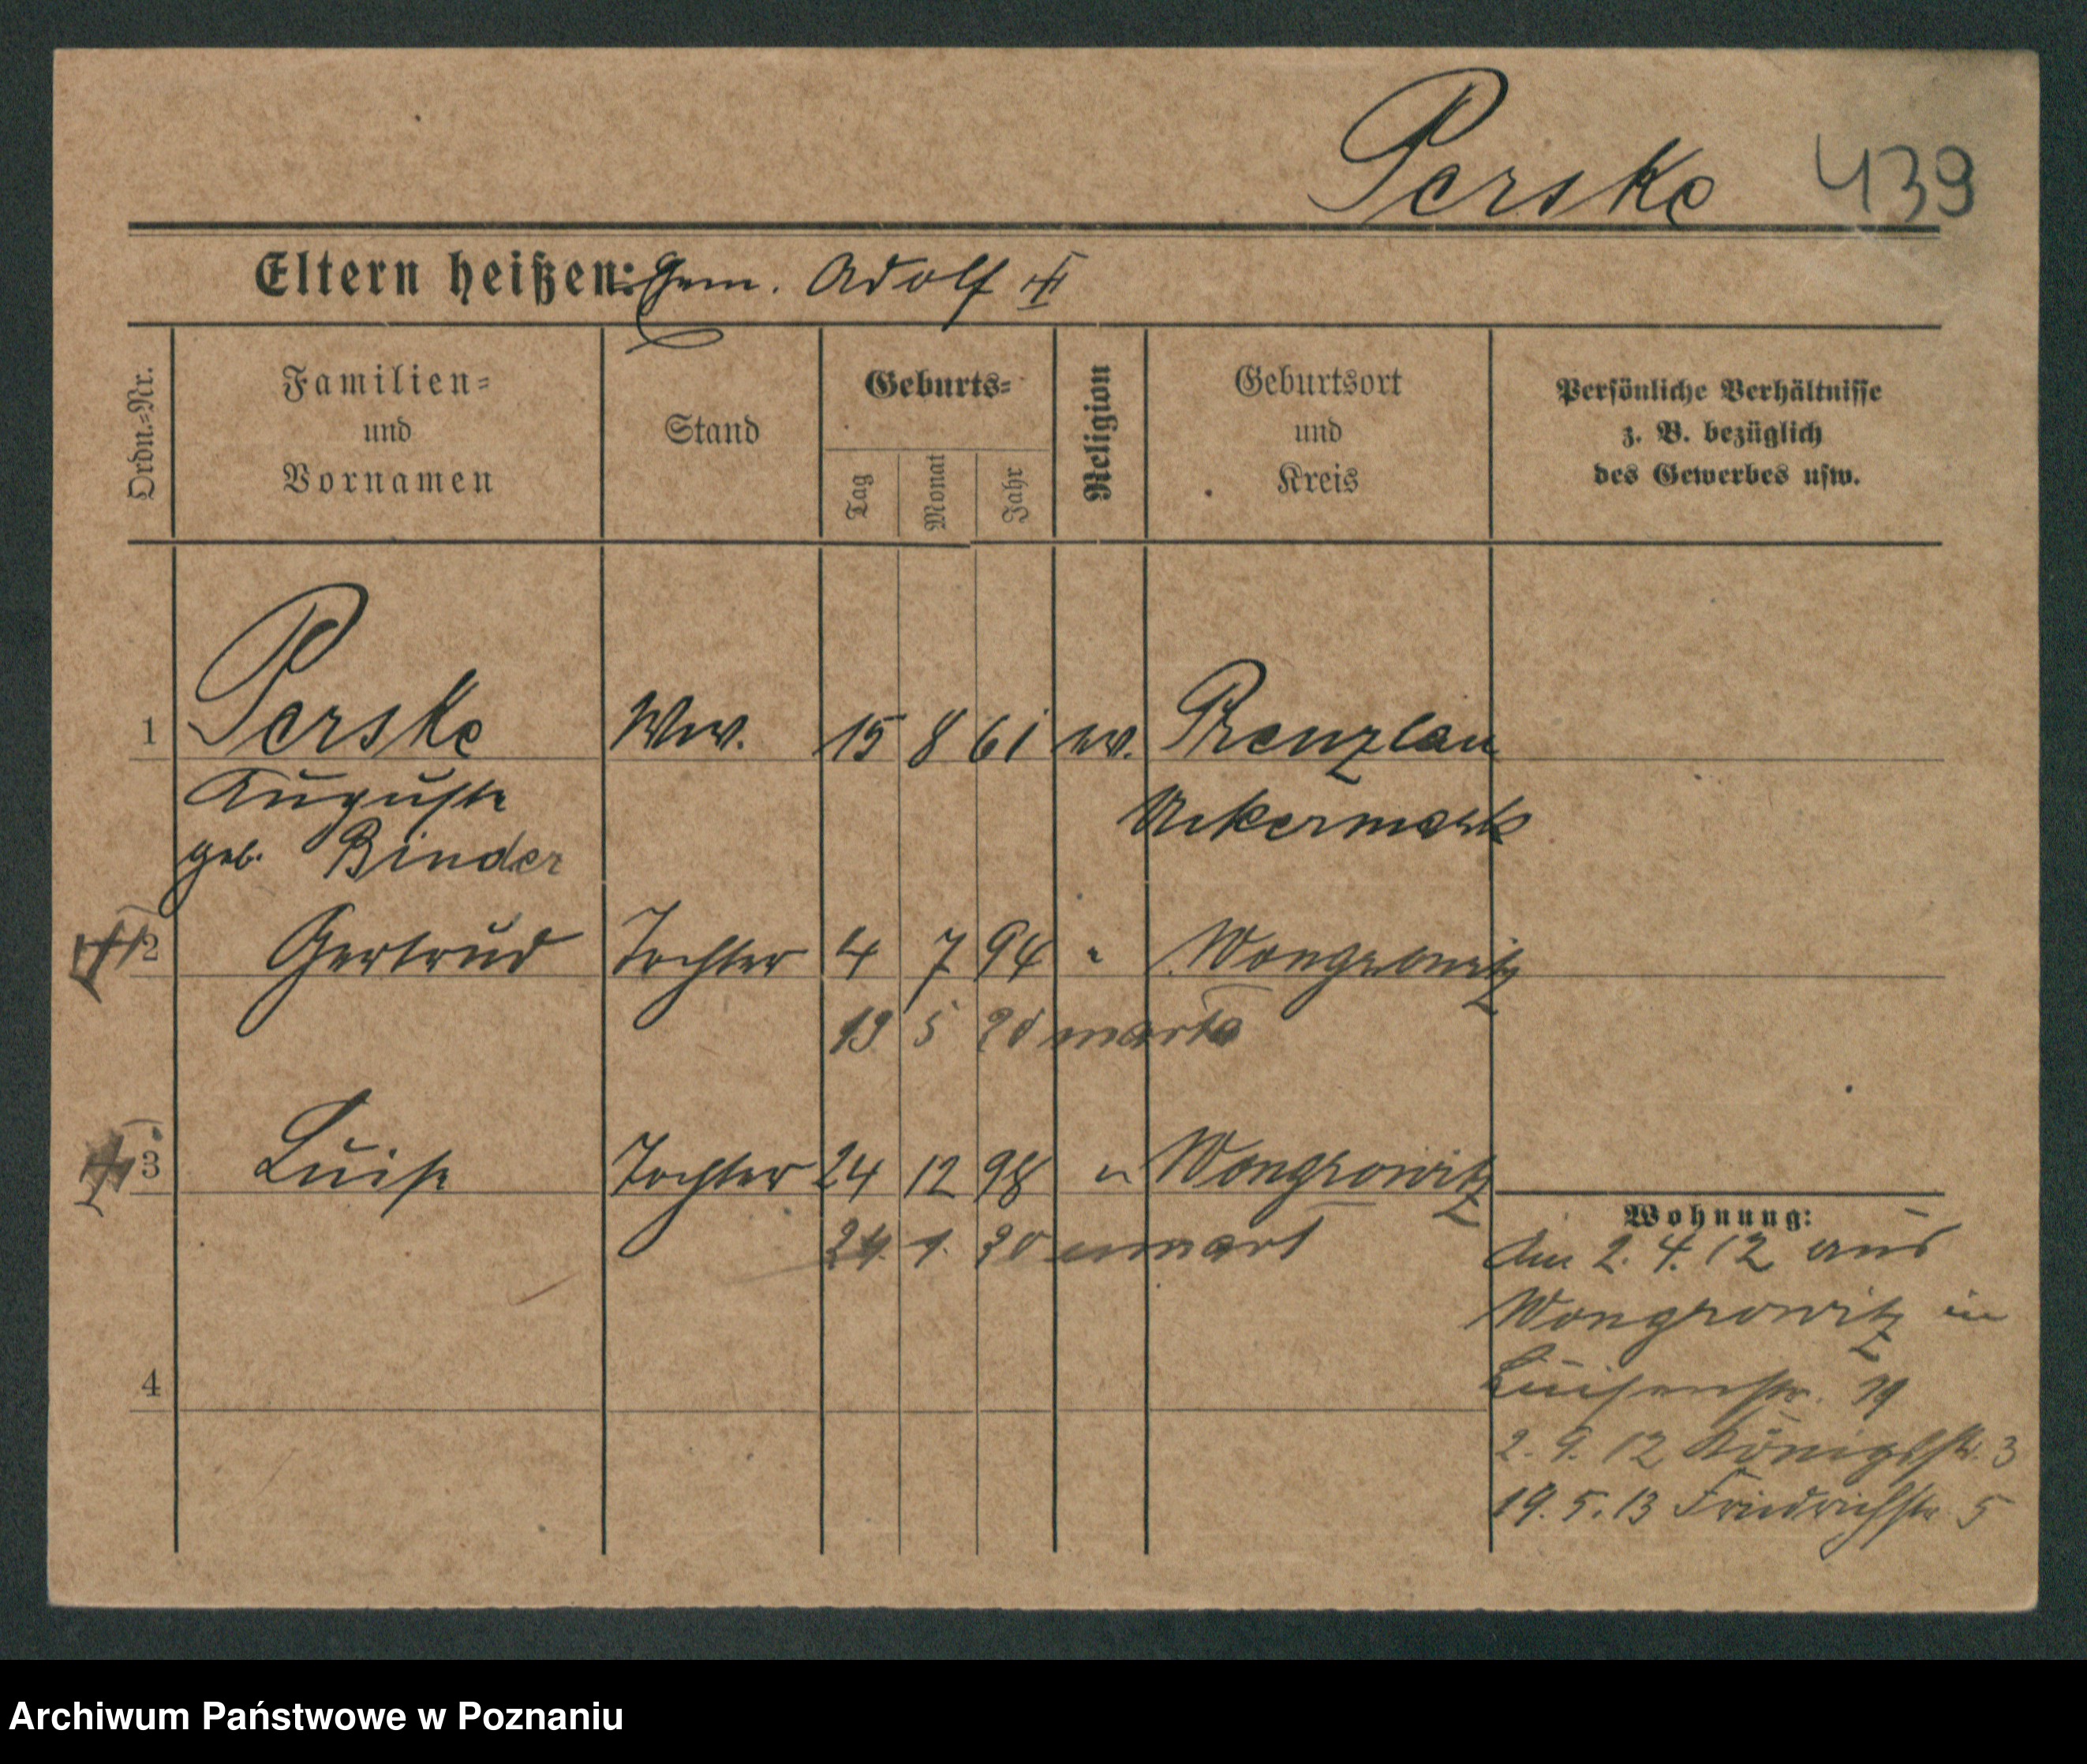 Perske 439
Eltern heißen: Gem. Adolf
Ordn.=Nr.
Familien=
und
Vornamen
Stand
Geburts=
Tag
Monat
Jahr
Religion
Geburtsort
und
Kreis
Persönliche Verhältnisse
z. B. bezüglich
des Gewerbes usw.
1 Perske Ww. 15 8 61 ev. Prenzlau
Auguste Uckermark
geb. Binder
2 Gertrud Tochter 4 7 94 " Wongrowitz
19 5 20 marła
3 Luise Tochter 24 12 98 " Wongrowitz
24. 1. 20
Wohnung:
Am 2. 4. 12 aus
Wongrowitz in
Luisenstr. 19
2. 9. 12 Königstr. 3
19. 5. 13 Friedrichstr 5
4
Archiwum Państwowe w Poznaniu